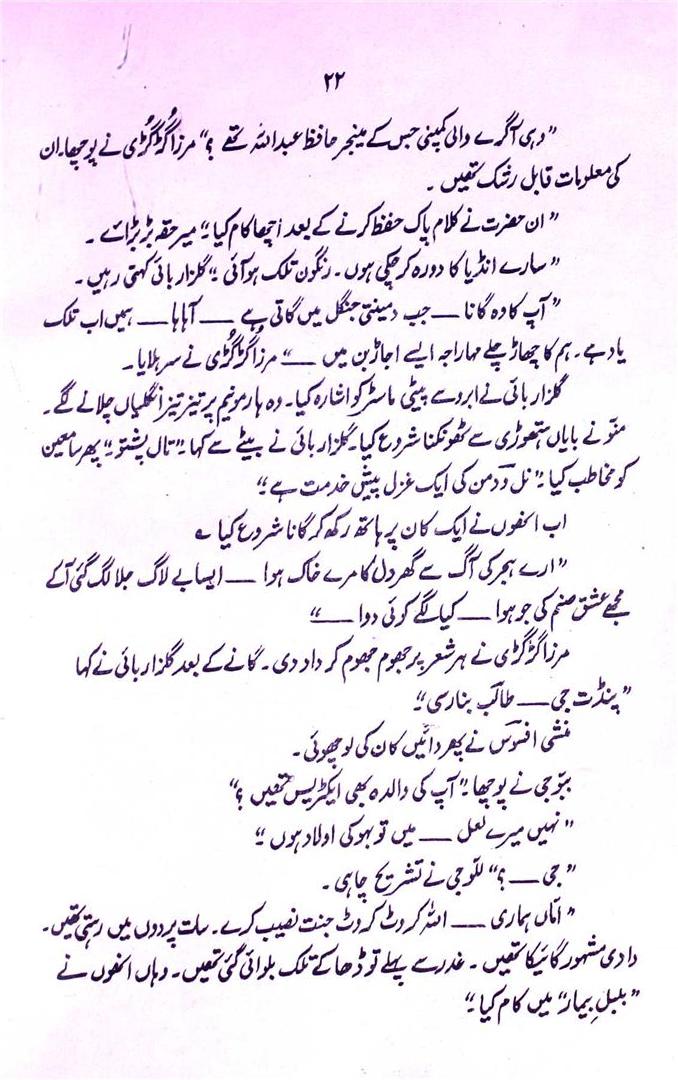 ۲۲
”وہی آگرے والی کمپنی جس کے مینجر حافظ عبداللہ تھے ؟“ مرزا گڑگڑی نے پوچھا۔ ان
کی معلومات قابل رشک تھیں ۔
”ان حضرت نے کلام پاک حفظ کرنے کے بعد اچھا کام کیا۔“ میر حقہ بڑبڑائے ۔
”سارے انڈیا کا دورہ کر چکی ہوں ۔ رنگون تلک ہو آئی ۔“ گلزار بائی کہتی رہیں ۔
”آپ کا وہ گانا —— جب دمینتی جنگل میں گاتی ہے —— آہاہا —— ہمیں اب تلک
یاد ہے ۔ ہم کا چھاڑ چلے مہاراجہ ایسے اجاڑ بن میں ——“ مرزا گڑگڑی نے سر ہلایا ۔
گلزار بائی نے ابرو سے پیٹی ماسٹر کو اشارہ کیا ۔ وہ ہارمونیم پر تیز تیز انگلیاں چلانے لگے ۔
منّو نے بایاں ہتھوڑی سے ٹھونکنا شروع کیا۔ گلزار بائی نے بیٹے سے کہا۔ ”تال پشتو“۔ پھر سامعین
کو مخاطب کیا۔ ”نل و دمن کی ایک غزل پیش خدمت ہے ۔“
اب انھوں نے ایک کان پر ہاتھ رکھ کر گانا شروع کیا ؎
”ارے ہجر کی آگ سے گھر دل کا مرے خاک ہوا —— ایسا بے لاگ جلا لگ گئی آ کے
مجھے عشق صنم کی جو ہوا —— کیا لگے کوئی دوا ——“
مرزا گڑگڑی نے ہر شعر پر جھوم جھوم کر داد دی ۔ گانے کے بعد گلزار بائی نے کہا
”پنڈت جی —— طالب بنارسی“۔
منشی افسوس نے پھر دائیں کان کی لو چھوئی ۔
ببّو جی نے پوچھا۔ ”آپ کی والدہ بھی ایکٹریس تھیں ؟“
”نہیں میرے لعل —— میں تو بہو کی اولاد ہوں ۔“
”جی —— ؟“ للّو جی نے تشریح چاہی ۔
”امّاں ہماری —— اللہ کروٹ کروٹ جنت نصیب کرے ۔ سات پردوں میں رہتی تھیں ۔
دادی مشہور گائیکا تھیں ۔ غدر سے پہلے تو ڈھاکے تلک بلوائی گئی تھیں ۔ وہاں انھوں نے
”بلبلِ بیمار“ میں کام کیا ۔“